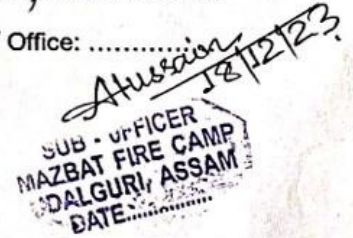 Office: ..............
AHussain
18/12/23
SUB - OFFICER
MAZBAT FIRE CAMP
UDALGURI, ASSAM
DATE..............